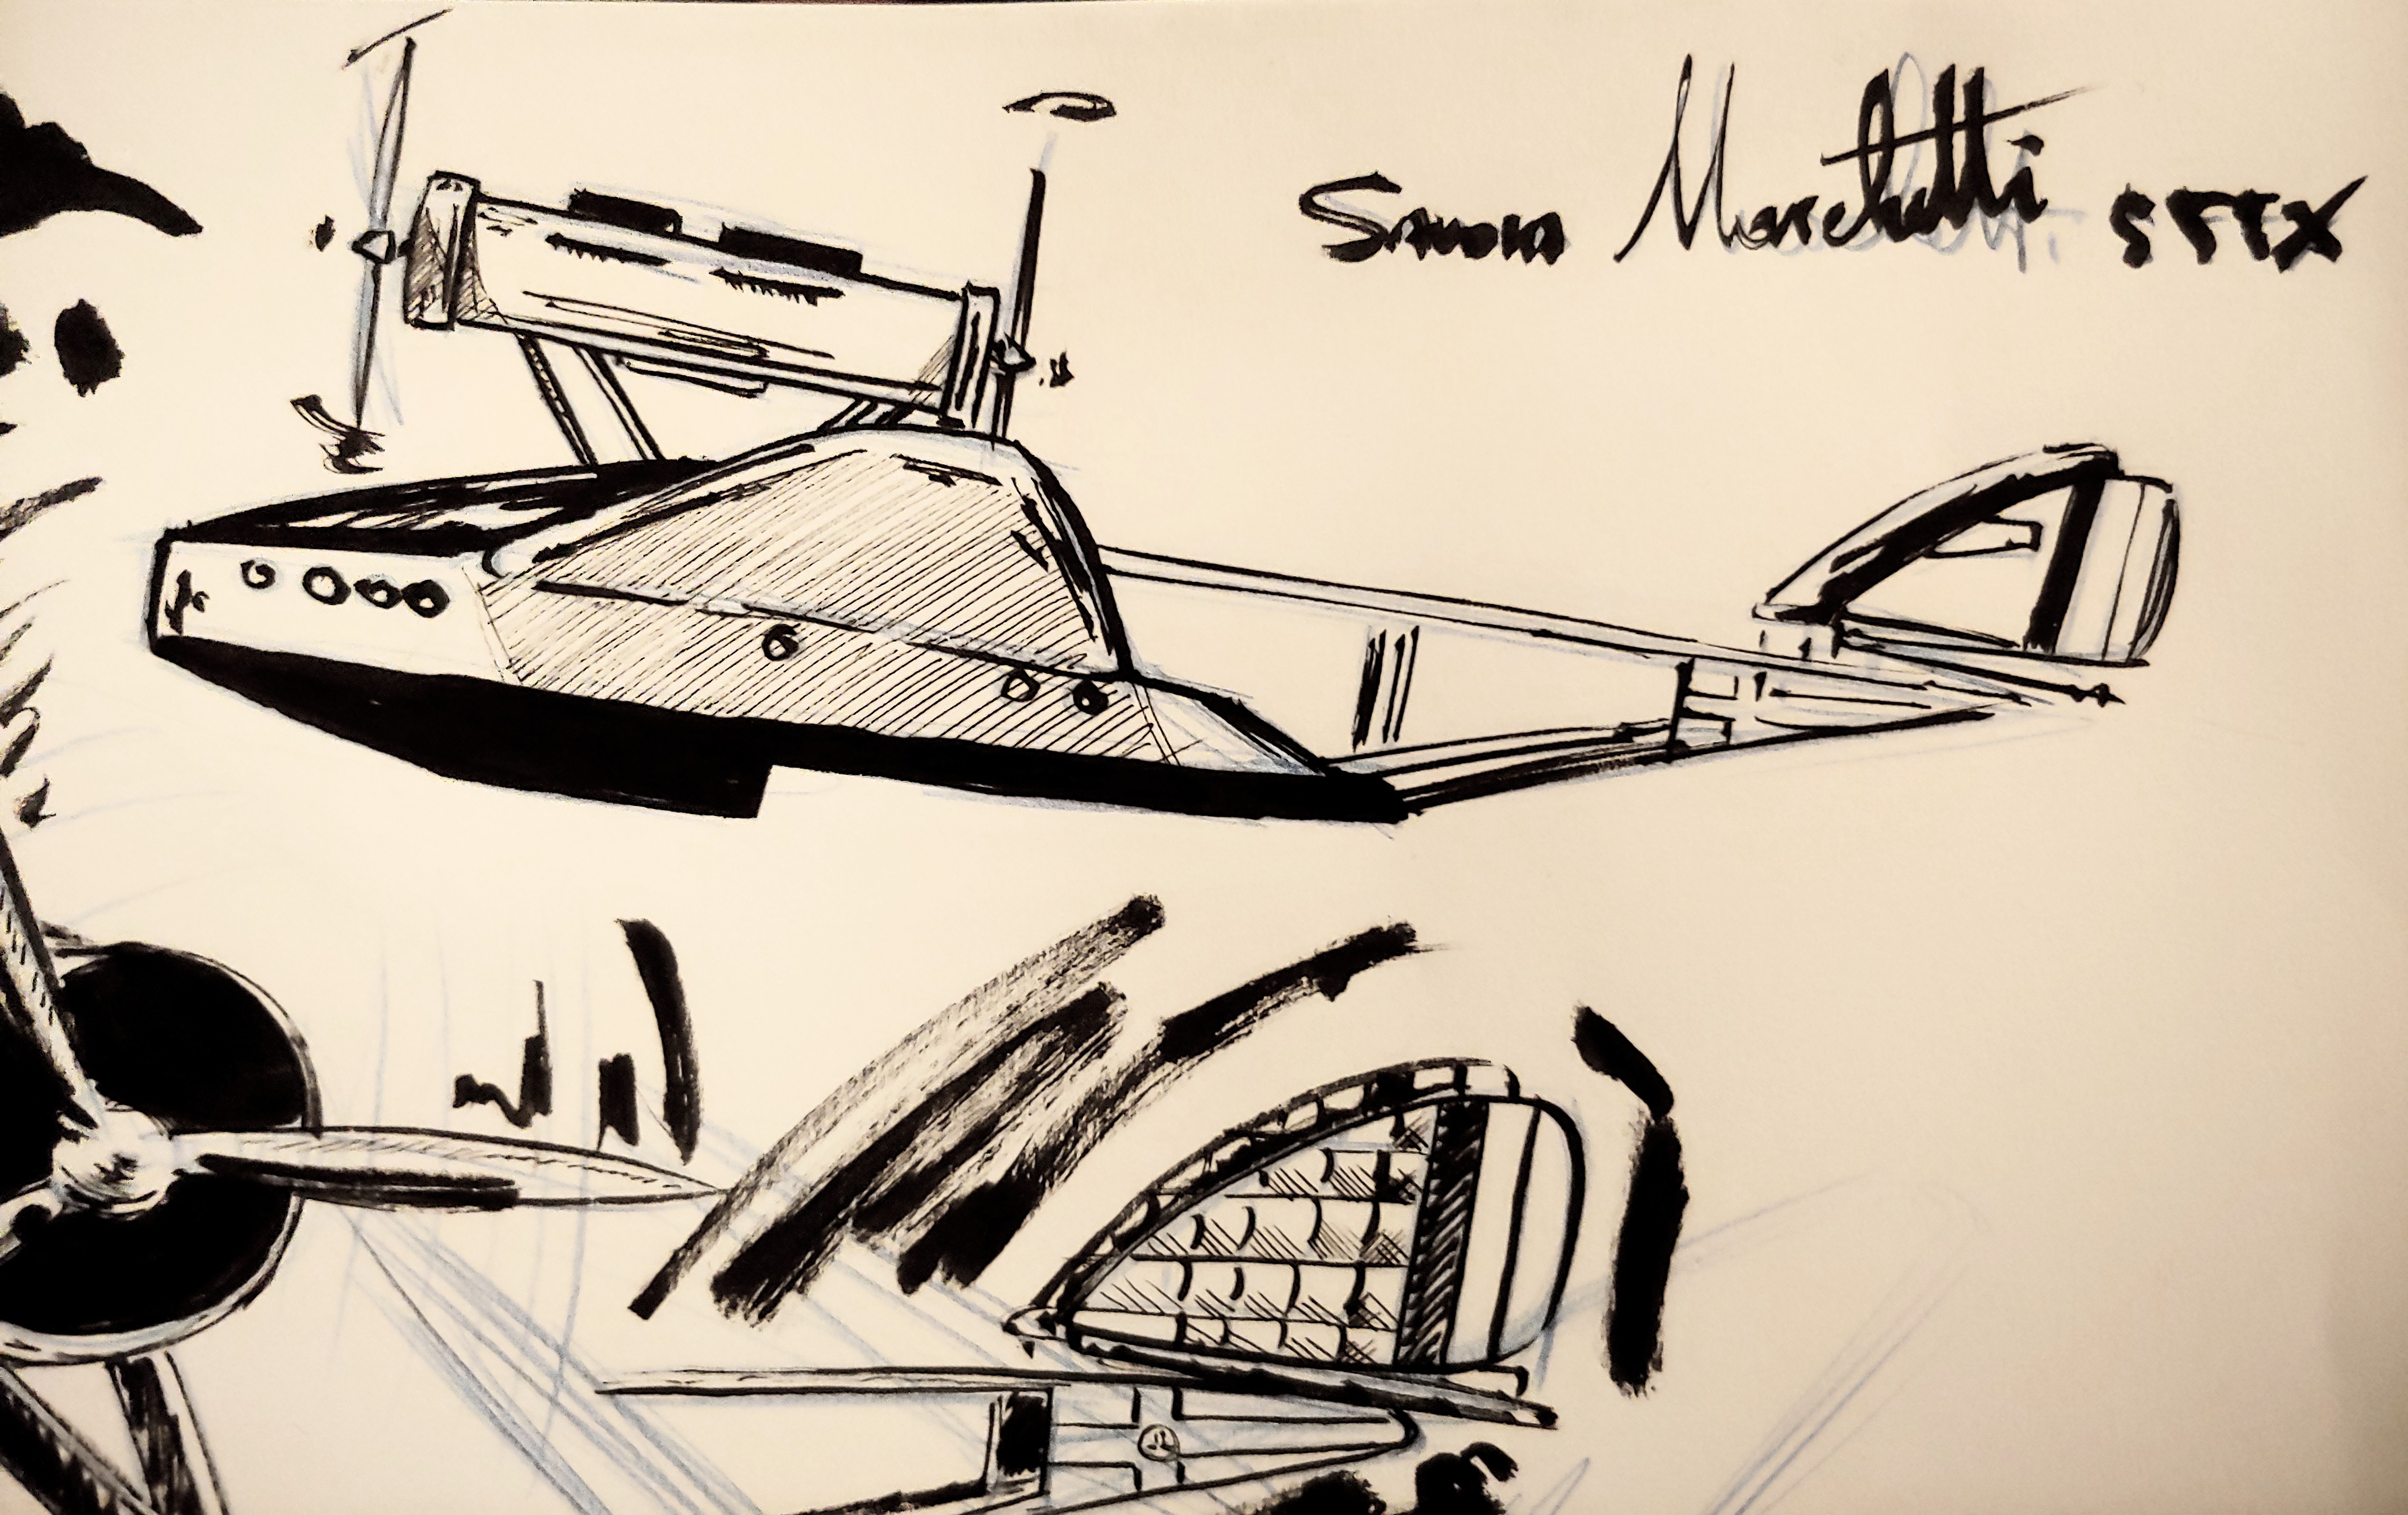 SAVOIA Marchetti S55X